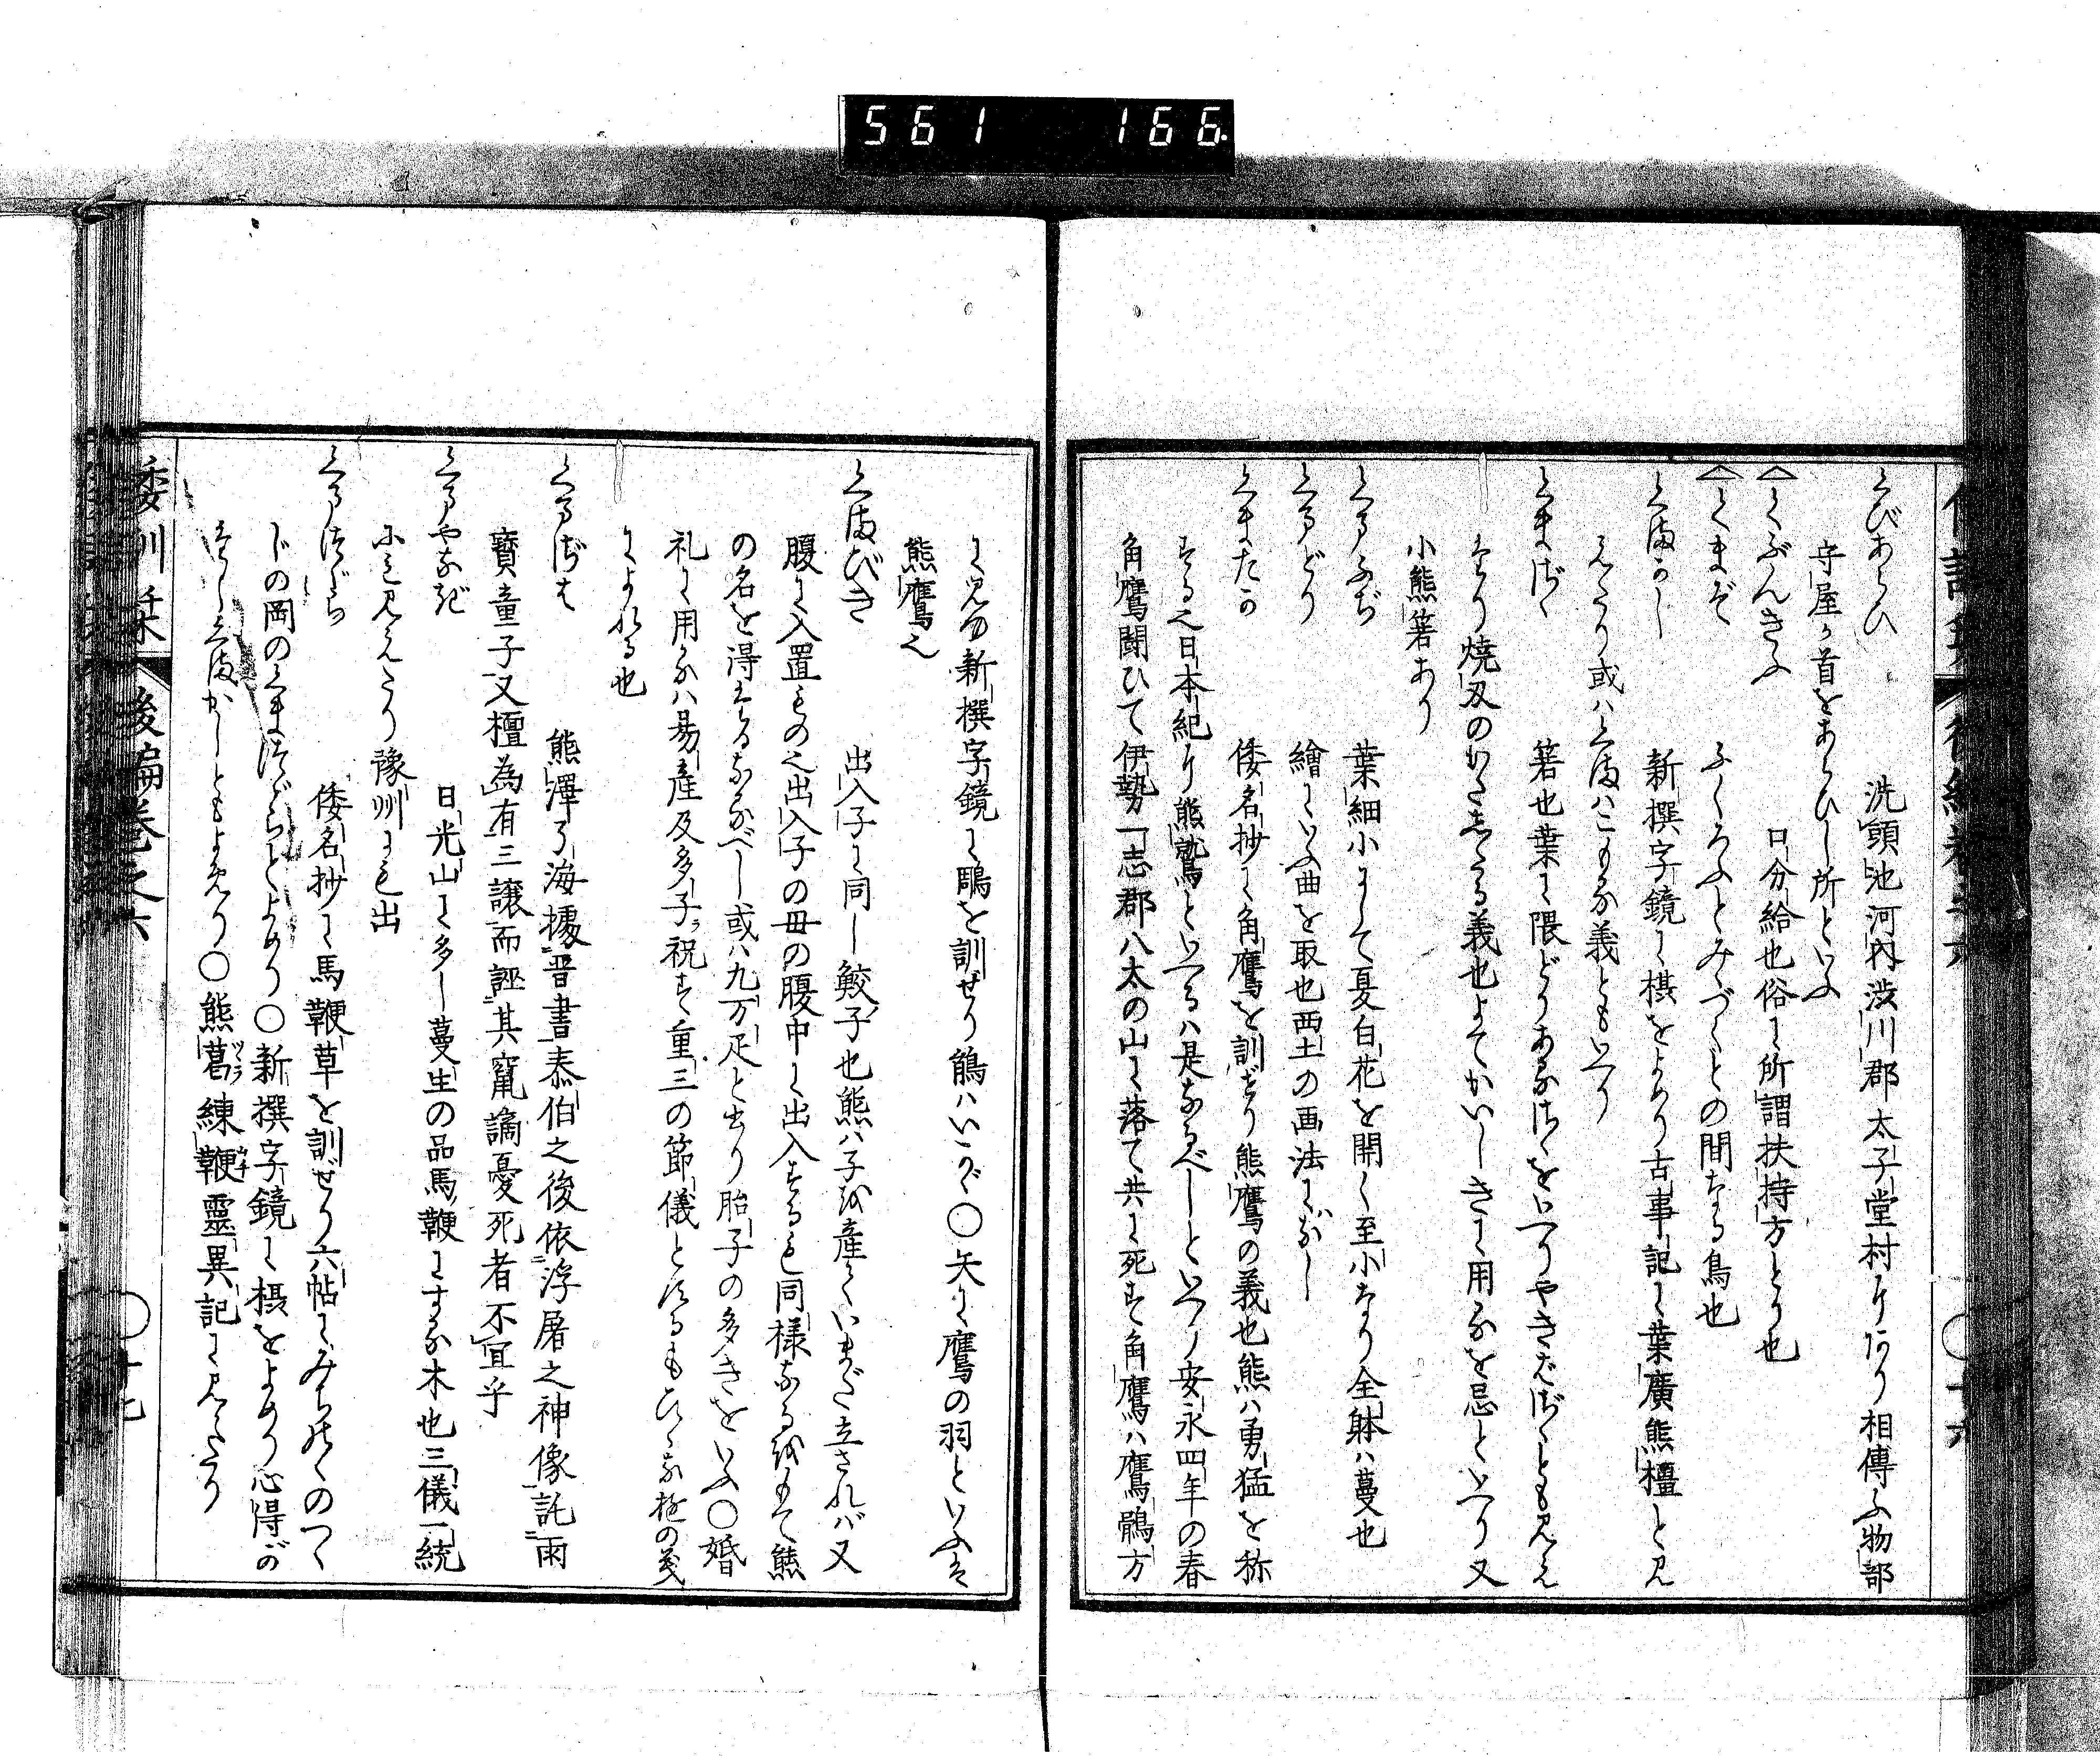 561 166
くびあらひ 洗頭池河内渋川郡太子堂村にあり相傳ふ物部
守屋か首をあらひし所といふ
くぶんきふ 口分給也俗に所謂扶持方とり也
くまぞ ふくろふとみゝづくとの間なる鳥也
くまかし 新撰字鏡に椇をよめり古事記に葉廣熊橿と見
えたり或ハくまハこもる義ともいへり
くまざゝ 箬也葉に隈どりあるさゝをいへりやきばざゝとも見え
たり燒刄のかたしたる義也よてかいしきに用るを忌といへり又
小熊箬あり
くまふぢ 葉細小にして夏白花を開く至小なり全躰ハ蔓也
くまどり 繪にいふ曲を取也西土の画法になし
くまたか 倭名抄に角鷹を訓ぜり熊鷹の義也熊ハ勇猛を称
する也日本紀に熊鷲といへるハ是なるべしといへり安永四年の春
角鷹鬪ひて伊勢一志郡八太の山に落て共に死す角鷹ハ鷹鶻方
に見ゆ新撰字鏡に鵰を訓せり鵃ハいかゞ○矢に鷹の羽といふは
熊鷹也
くまびき 出入子に同し鮫子也熊ハ子を産ていまだ立されバ又
腹に入置もの也出入子の母の腹中に出入するも同様なるをもて熊
の名を得たるなるべし或ハ九万疋と書り胎子の多きをいふ○婚
礼に用るハ易産及多子ヲ祝す重三の節儀とするもひゝな遊の義
によれる也
熊澤了海據晋書泰伯之後依浮屠之神像託雨
寳童子又檀為有三譲而誣其竄謫憂死者不宜乎
くまやなぎ 日光山に多し蔓生の品馬鞭にする木也三儀一統
にも見えたり豫州にも出
くまつゞら 倭名抄に馬鞭草を訓ぜり六帖にみちのくのつゝ
じの岡のくまつゞらとよめり○新撰字鏡に椇をよめり心得が
たしくまかしともよめり○熊葛練鞭靈異記に見えたり
倭訓栞 後編巻之六